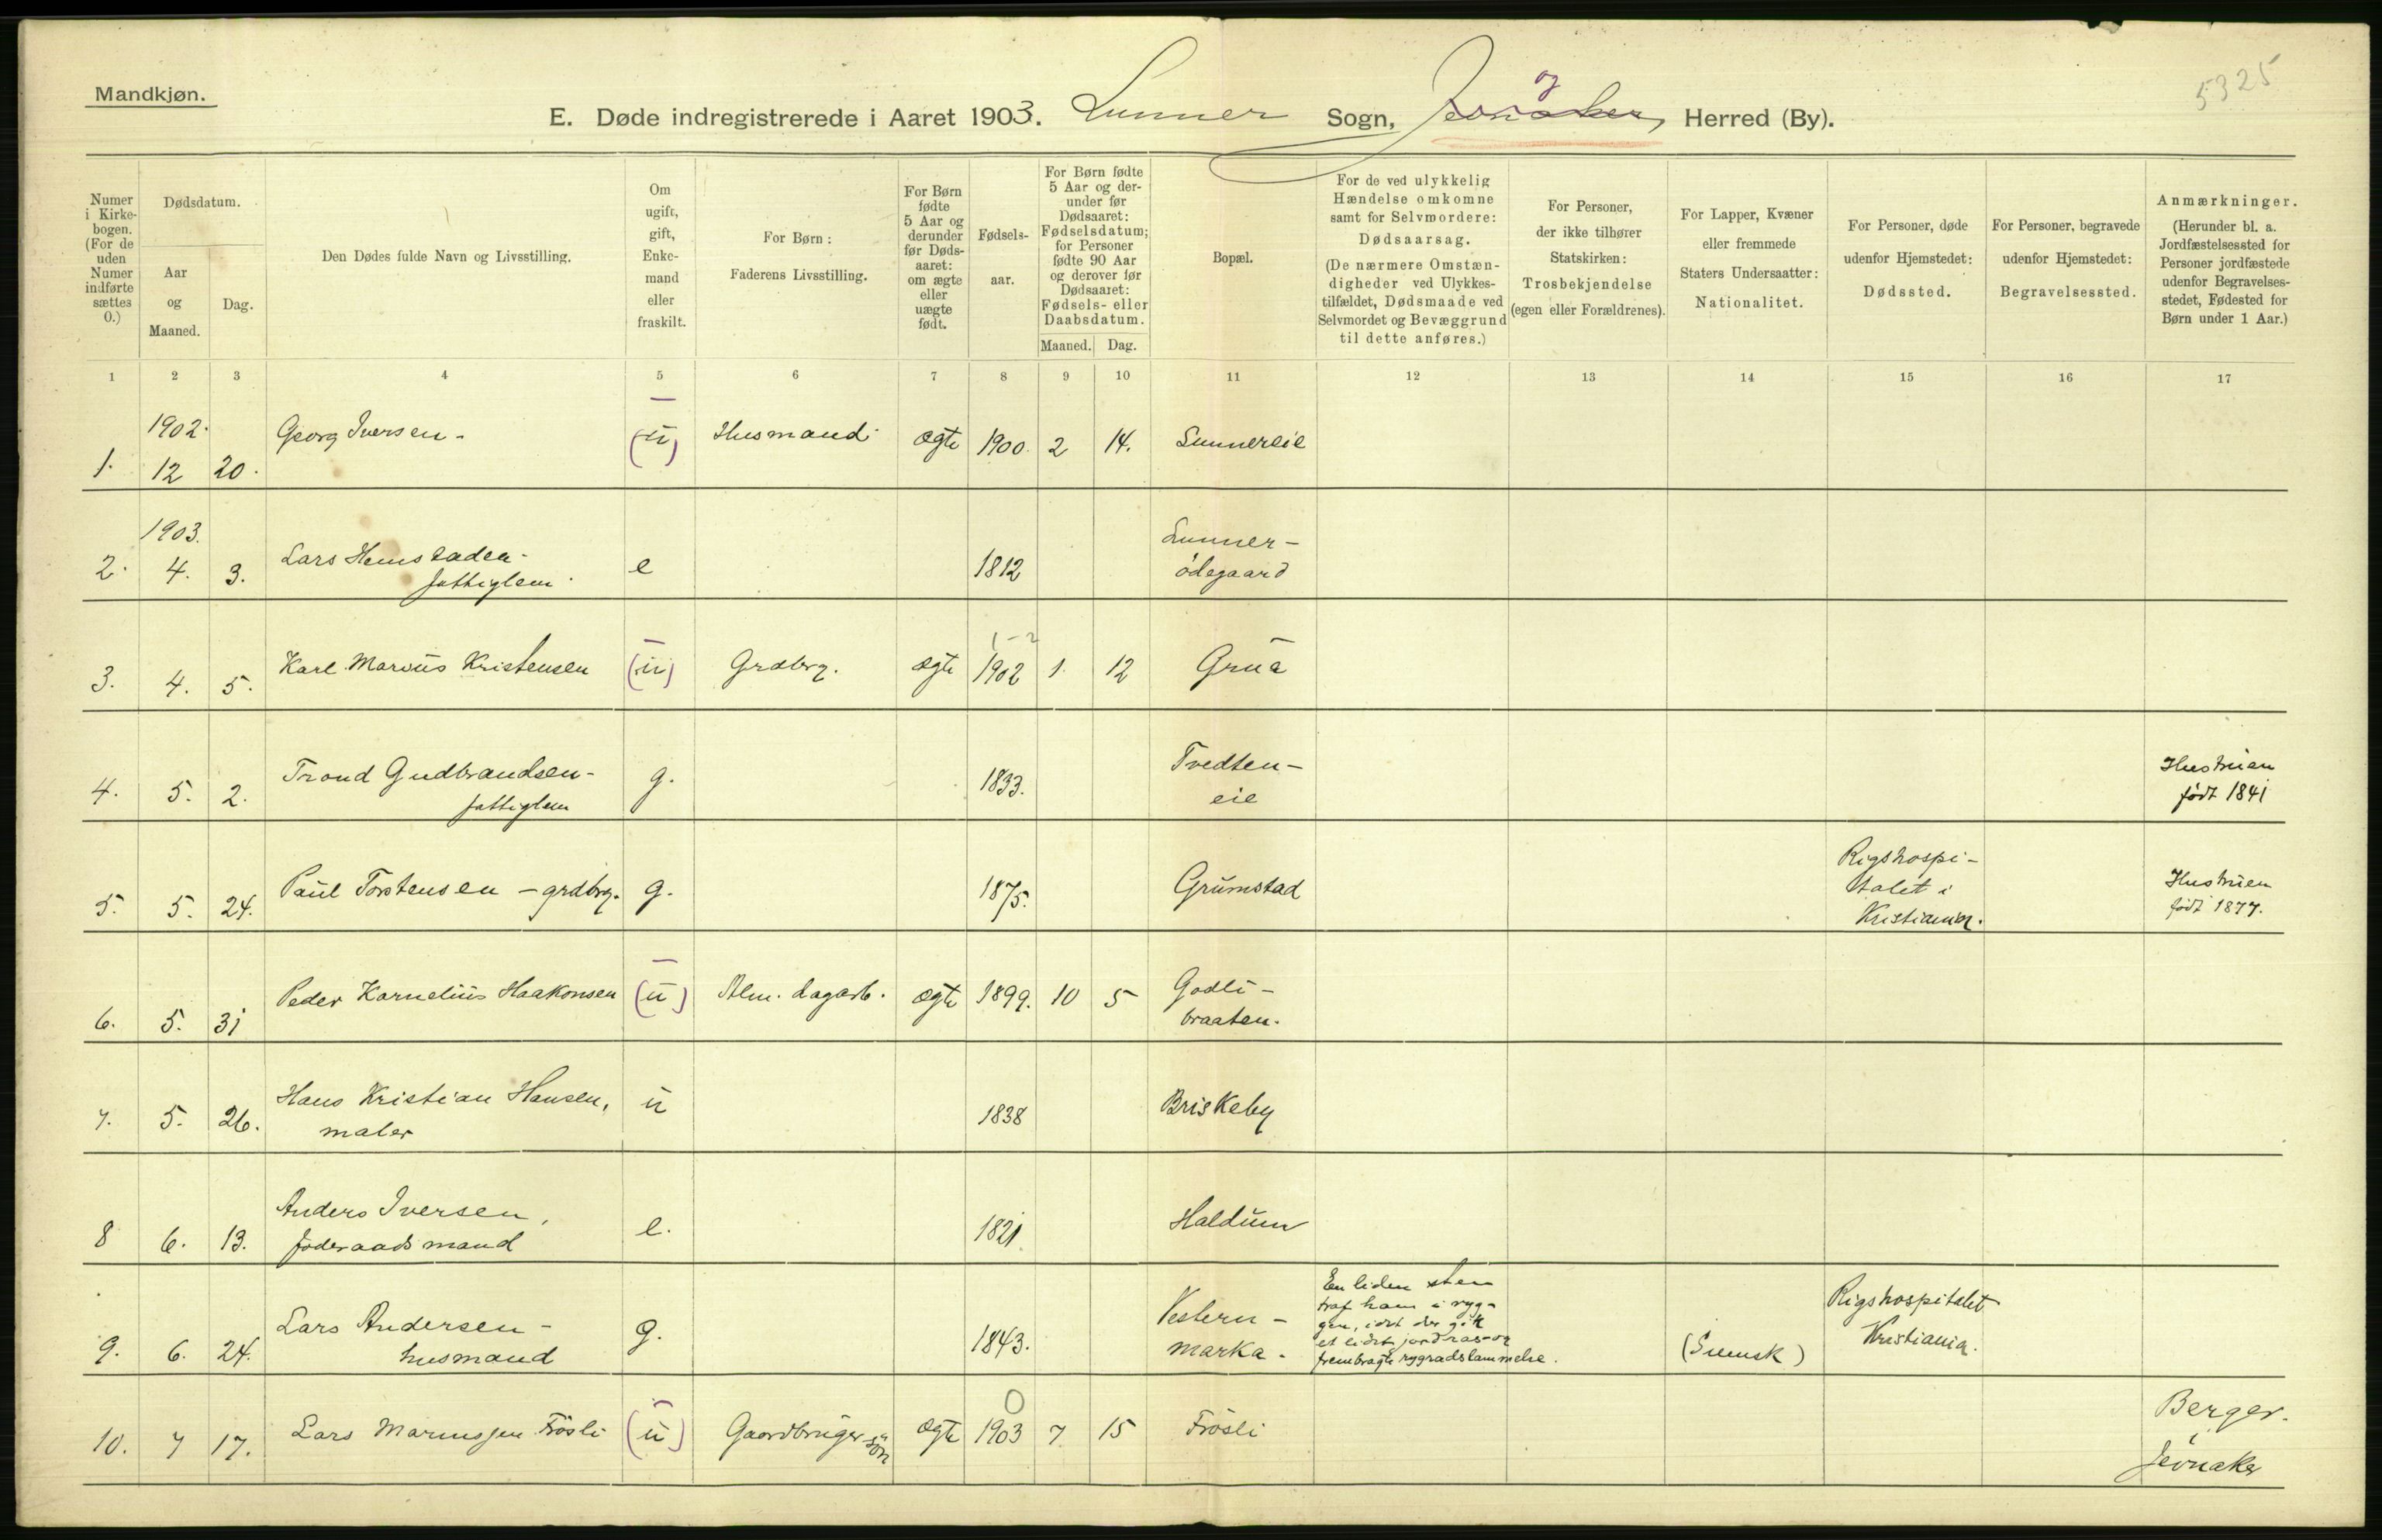 Mandkjøn.
5325
E. Døde indregistrerede i Aaret 1903. Lunner Sogn, og Jevnaker, Herred (By).
Numer i Kirkebogen. (For de uden Numer indførte sættes 0.)
Dødsdatum.
Aar og Maaned.
Dag.
Den Dødes fulde Navn og Livsstilling.
Om ugift, gift, Enkemand eller fraskilt.
For Børn: Faderens Livsstilling.
For Børn fødte 5 Aar og derunder før Dødsaaret: om ægte eller uægte født.
Fødselsaar.
For Børn fødte 5 Aar og derunder før Dødsaaret: Fødselsdatum; for Personer fødte 90 Aar og derover før Dødsaaret: Fødsels- eller Daabsdatum.
Maaned. Dag.
Bopæl.
For de ved ulykkelig Hændelse omkomne samt for Selvmordere: Dødsaarsag. (De nærmere Omstændigheder ved Ulykkestilfældet, Dødsmaade ved Selvmordet og Bevæggrund til dette anføres.)
For Personer, der ikke tilhører Statskirken: Trosbekjendelse (egen eller Forældrenes).
For Lapper, Kvæner eller fremmede Staters Undersaatter: Nationalitet.
For Personer, døde udenfor Hjemstedet: Dødssted.
For Personer, begravede udenfor Hjemstedet: Begravelsessted.
Anmærkninger. (Herunder bl. a. Jordfæstelsessted for Personer jordfæstede udenfor Begravelsesstedet, Fødested for Børn under 1 Aar.)
1 2 3 4 5 6 7 8 9 10 11 12 13 14 15 16 17
1902.
1. 12 20. Georg Iversen - (u) Husmand ægte 1900. 2 14. Lunnereie
1903.
2. 4. 3. Lars Hemstaden - fattiglem. e 1812 Lunner-ødegaard
3. 4. 5. Karl Marius Kristensen (u) Grdbrg. ægte 1902 1-2 1. 12 Grua
4. 5. 2. Trond Gudbrandsen - fattiglem g. 1833. Tvedten-eie Hustruen født 1841
5. 5. 24. Paul Torstensen - grdbrg. g. 1875. Grumstad Rigshospi-talet i Kristiania. Hustruen født 1877.
6. 5. 31 Peder Kornelius Haakonsen (u) Alm. dagarb. ægte 1899. 10 5 Godli-braaten.
7. 5. 26. Hans Kristian Hansen, maler u 1838 Briskeby
8 6. 13. Anders Iversen, føderaadsmand e. 1821. Haldum
9. 6. 24. Lars Andersen - husmand g. 1843. Vestern-marka. En liden sten traf ham i ryg-gen, idet der gik et lidet jordras og frembragte rygradslammelse. (Svensk) Rigshospitalet Kristiania.
10. 7 17. Lars Mariussen Frøsli (u) Gaardbruger søn ægte 1903 0 7 15 Frøsli Berger. Jevnaker